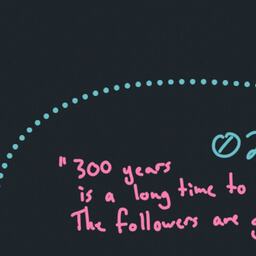 02
" 300 years
is a long time to
The followers are g